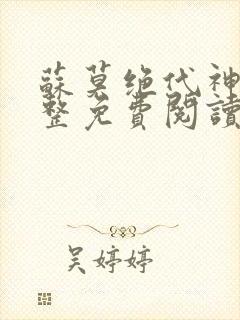 蘇莫绝代神
整免費閱讀
吴婷婷